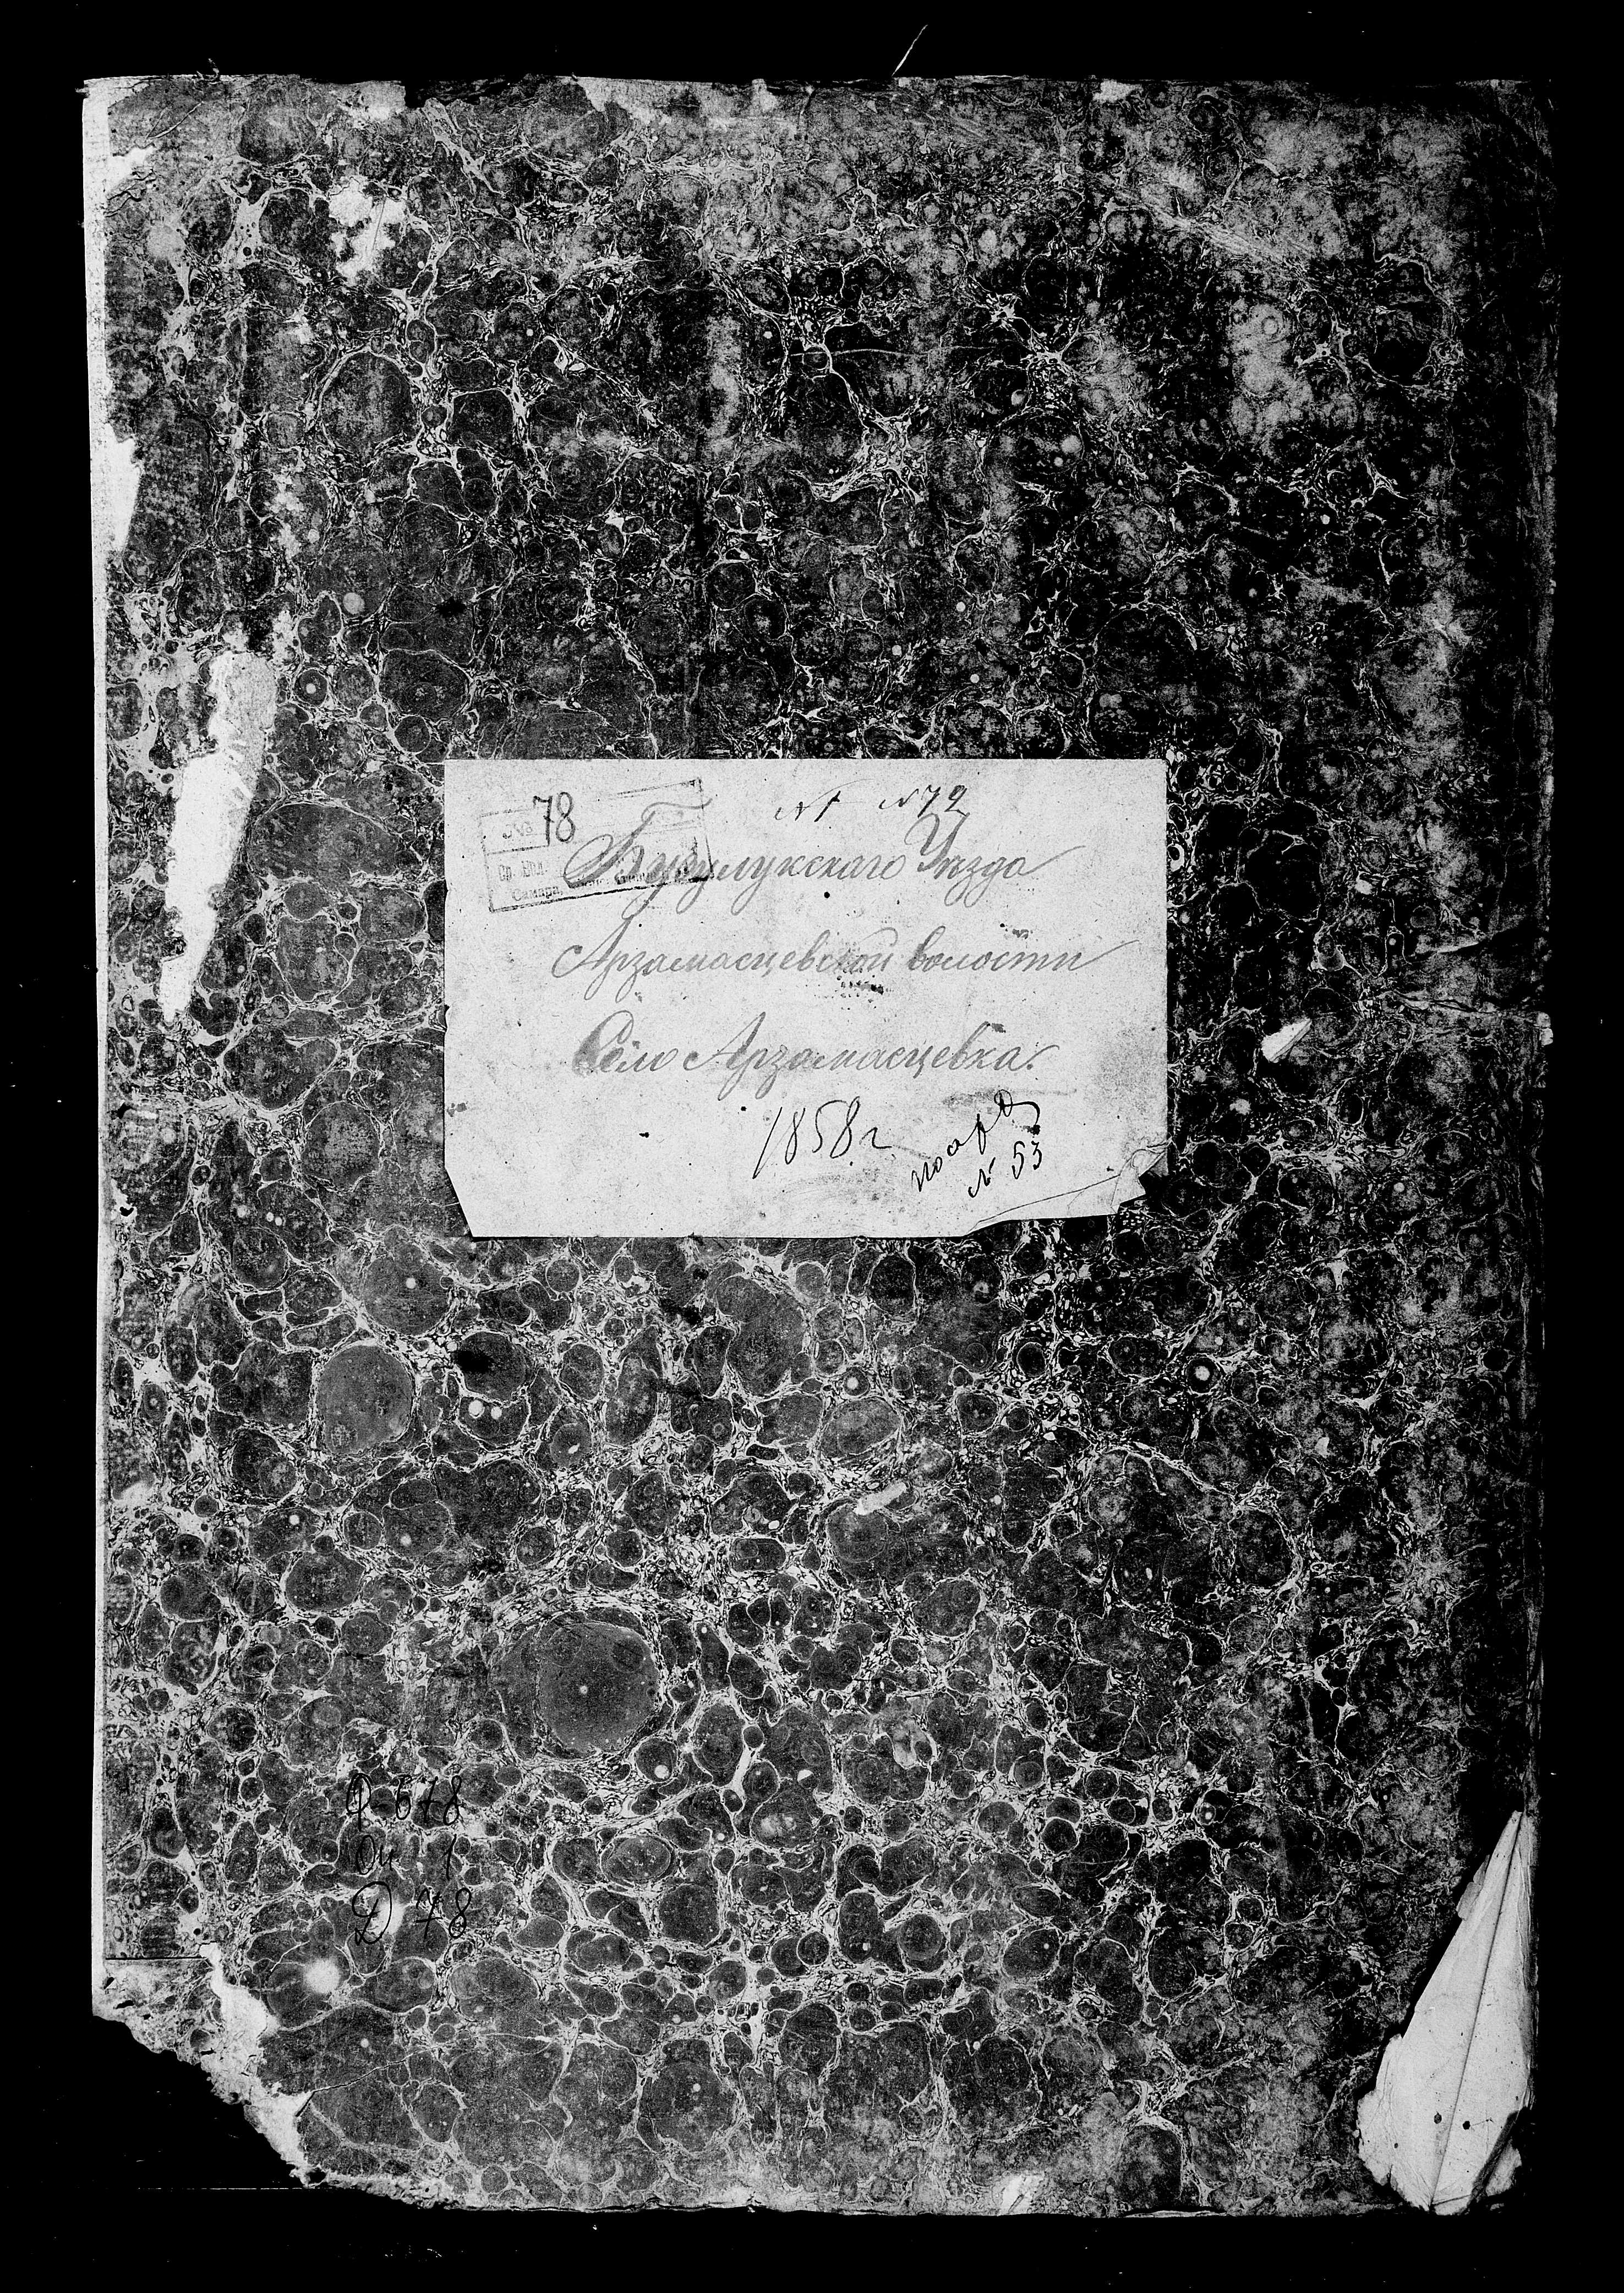 № 1 № 72
№ 78
Бузулукскаго Уѣзда
Арзамасцевской волости
Село Арзамасцевка.
1858 г.
по арх
№ 53
Ф 678
Оп 1
Д 78